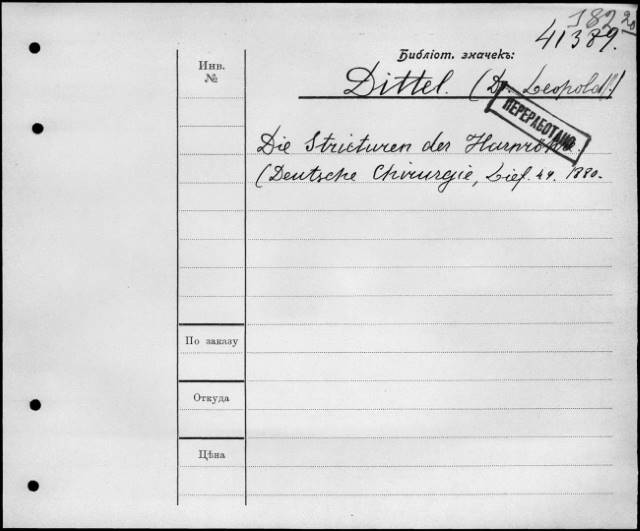 182
20
41389.
Библіот. значекъ:
Инв.
№
Dittel. (Dr. Leopold.)
ПЕРЕРАБОТАНО
Die Stricturen der Harnröhre.
(Deutsche Chirurgie, Lief. 49. 1880.
По заказу
Откуда
Цѣна